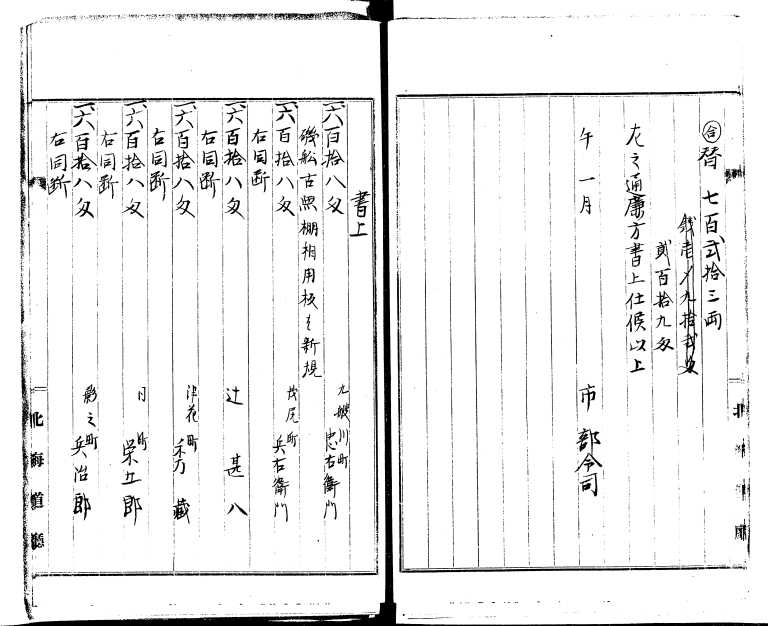 ㊎替 七百弐拾三両
銭壱〆九拾弐匁
貳百拾九匁
左之通廉方書上仕候以上
午一月
市部令司
北海道廳
書上
一、六百拾八匁
九艘川町 忠右衛門
磯舩古照棚相用板を新規
一、六百拾八匁
茂尻町 兵右衛門
右同断
一、六百拾八匁
辻 甚八
右同断
一、六百拾八匁
津花町 秀蔵
右同断
一、六百拾八匁
同町 栄五郎
右同断
一、六百拾八匁
影之町 兵治郎
右同断
北海道廳